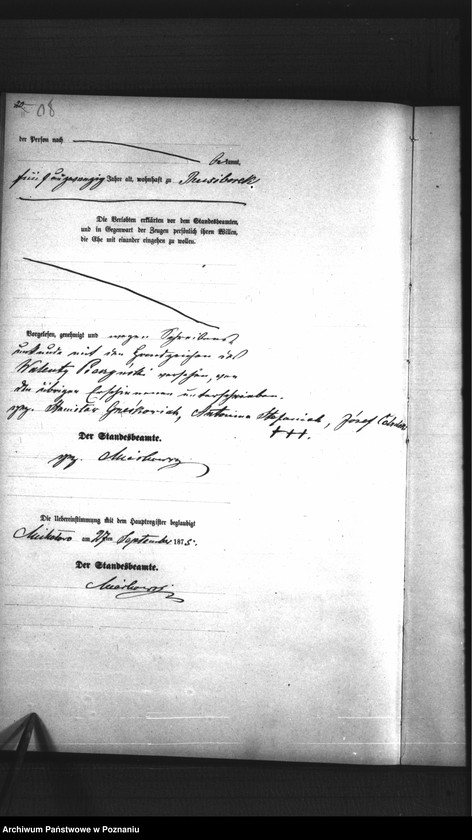 der Person nach
bekannt,
fünf und zwanzig Jahre alt, wohnhaft zu
Die Verlobten erklärten vor dem Standesbeamten,
und in Gegenwart der Zeugen persönlich ihren Willen,
die Ehe mit einander eingehen zu wollen.
Vorgelesen, genehmigt und wegen Schreibens
unkunde mit den Handzeichen des
Walenty versehen, von
den übrigen Erschienenen unterschrieben.
gez. Stanislaw Antonina Stefaniak, Józef
+++.
Der Standesbeamte.
gez.
Die Uebereinstimmung mit dem Hauptregister beglaubigt
am 27ten September 1875.
Der Standesbeamte.
Archiwum Państwowe w Poznaniu